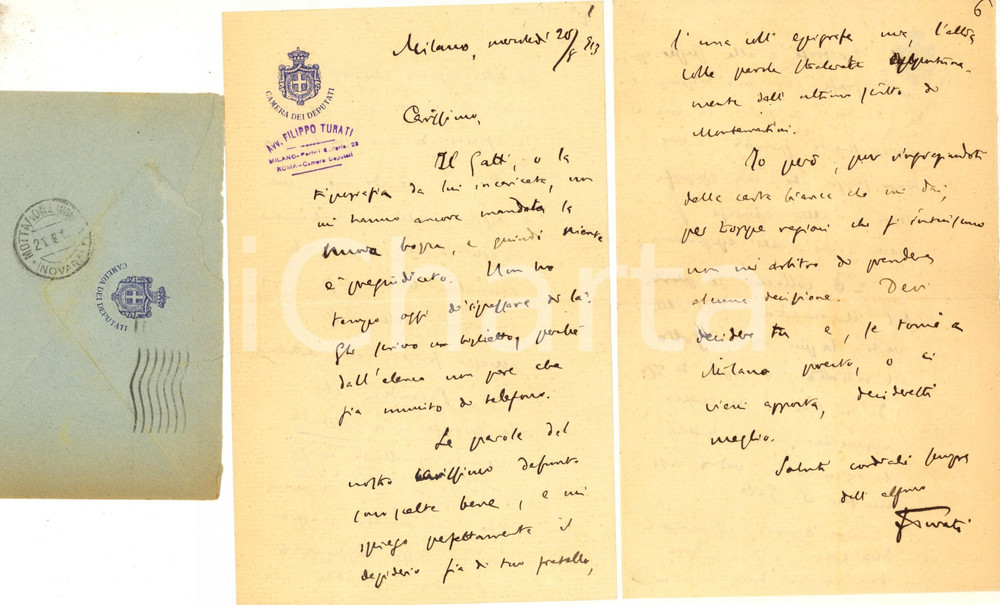 MOTTARONE
21.8.
(NOVARA)
CAMERA DEI DEPUTATI
1
Milano, mercoledì 20/8 913
CAMERA DEI DEPUTATI
AVV. FILIPPO TURATI
MILANO - Portici Galleria, 23
ROMA - Camera Deputati
Carissimo,
Il Gatti, o la
tipografia da lui incaricata, non
mi hanno ancora mandata la
nuova bozza, e quindi niente
è pregiudicato. Non ho
tempo oggi di ripassare di là.
Gli scrivo un biglietto, perchè
dall'elenco non pare che
sia munito di telefono.
Le parole del
nostro carissimo defunto
sono scelte bene, e mi
spiego perfettamente il
desiderio sia di tuo fratello,
6
l'una coll'epigrafe mia, l'altra
colle parole stralciate opportuna-
mente dall'ultimo scritto di
Montemartini.
Io però, pur ringraziandoti
della carta bianca che mi dai,
per troppe ragioni che si intuiscono
non mi arbitro di prendere
alcuna decisione. Devi
decidere tu e, se torni a
Milano presto, o ci
vieni apposta, deciderete
meglio.
Saluti cordiali sempre
dall'affmo
F Turati
iCharta